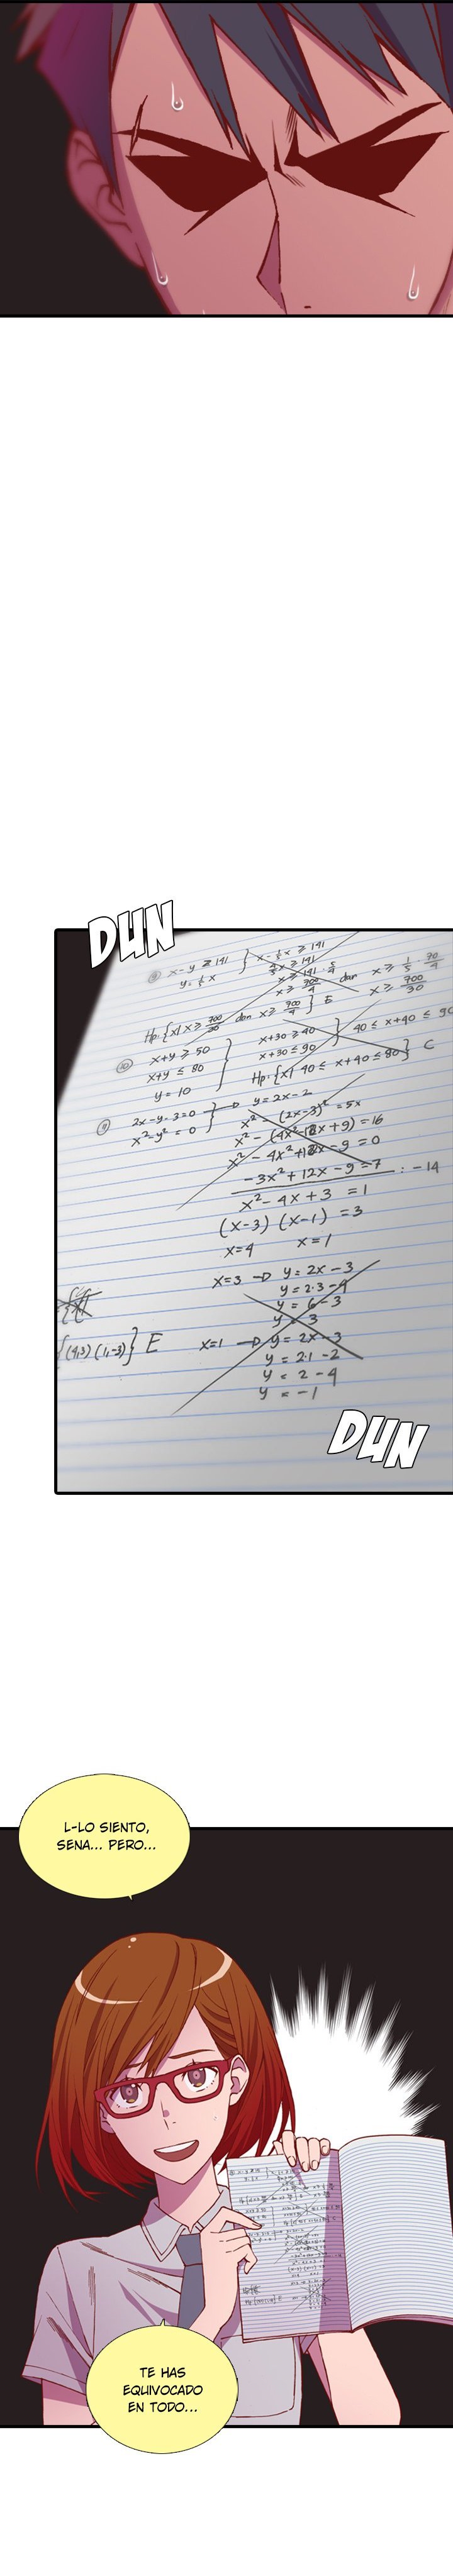 DUN
⑧ x - y ≥ 141 } x - ⅕x ≥ 141
y = ⅕x
x ≥ 141 · 5/4 dan x ≥ 1/5 70/4
x ≥ 700/4 x ≥ 700/30
Hp: {x| x ≥ 700/30 dan x ≥ 700/4} E
⑩ x+y ≥ 50 x+30 ≥ 40 } 40 ≤ x+40 ≤ 90
x+y ≤ 80 x+30 ≤ 90
y = 10 Hp: {x| 40 ≤ x+40 ≤ 80} C
⑨ 2x-y-3=0 } → y = 2x-2
x²-y² = 0 x² - (2x-3)² = 5x
x² - (4x²-12x+9) = 16
x² - 4x²+12x-9 = 0
-3x²+12x-9=7 : -14
x²-4x+3 = 1
(x-3) (x-1) = 3
x=4 x=1
x=3 → y = 2x-3
y = 2·3-4
y = 6-3
y = 3
{(4,3) (1,-3)} E x=1 → y = 2x-3
y = 2·1-2
y = 2-4
y = -1
DUN
L-LO SIENTO,
SENA... PERO...
TE HAS
EQUIVOCADO
EN TODO...